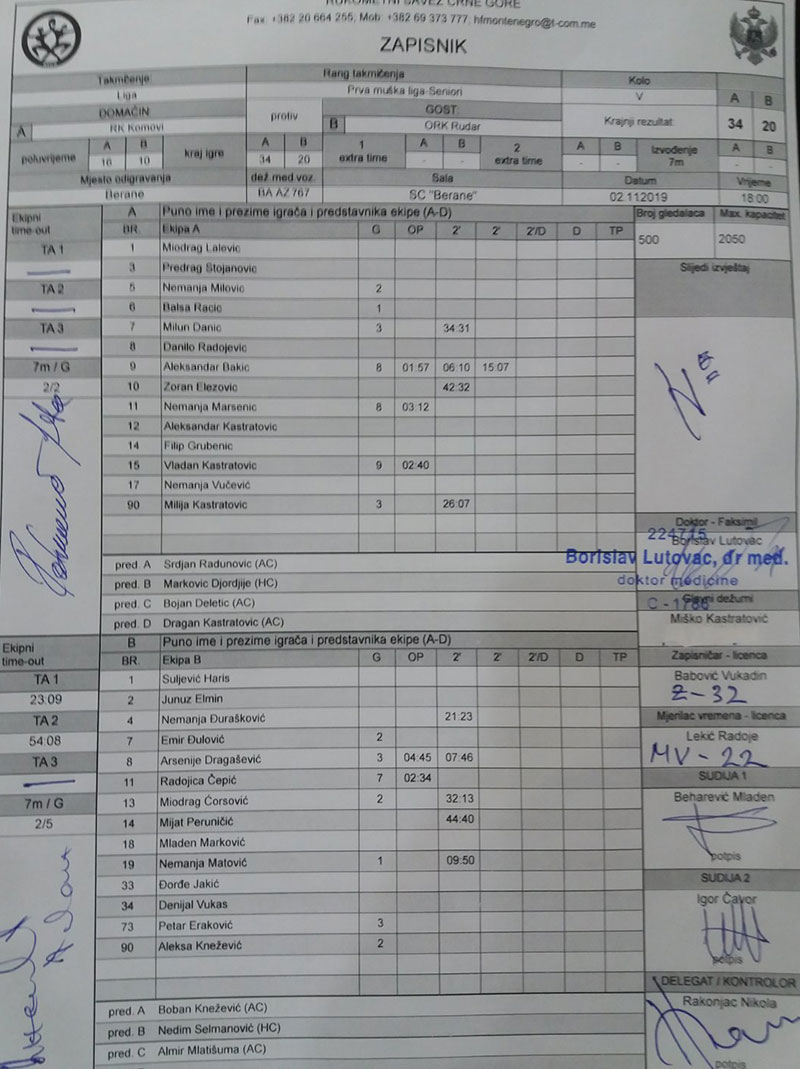 RUKOMETNI SAVEZ CRNE GORE
Fax: +382 20 664 255, Mob: +382 69 373 777, hfmontenegro@t-com.me
ZAPISNIK
Takmičenje Rang takmičenja Kolo A B
Liga Prva muška liga-Seniori V
DOMAĆIN protiv GOST Krajnji rezultat 34 20
A RK Komovi B ORK Rudar
poluvrijeme A B kraj igre A B 1 extra time A B 2 extra time A B Izvođenje 7m A B
16 10 34 20 - - - - - -
Mjesto odigravanja dež.med.voz. Sala Datum Vrijeme
Berane BA AZ 767 SC "Berane" 02.11.2019 18:00
Ekipni time-out A Puno ime i prezime igrača i predstavnika ekipe (A-D) Broj gledalaca Max. kapacitet
BR. Ekipa A G OP 2' 2' 2'/D D TP 500 2050
TA 1 1 Miodrag Lalevic
3 Predrag Stojanovic Slijedi izvještaj
TA 2 5 Nemanja Milovic 2
6 Balsa Racic 1
TA 3 7 Milun Danic 3 34:31
8 Danilo Radojevic
7m / G 9 Aleksandar Bakic 8 01:57 06:10 15:07
2/2 10 Zoran Elezovic 42:32
11 Nemanja Marsenic 8 03:12
12 Aleksandar Kastratovic
14 Filip Grubenic
15 Vladan Kastratovic 9 02:40
17 Nemanja Vučević
90 Milija Kastratovic 3 26:07
Doktor - Faksimil
224715
Borislav Lutovac
pred. A Srdjan Radunovic (AC) Borislav Lutovac, dr med.
pred. B Markovic Djordjije (HC) doktor medicine
pred. C Bojan Deletic (AC) C - 1786 Glavni dežurni
pred. D Dragan Kastratovic (AC) Miško Kastratović
Ekipni time-out B Puno ime i prezime igrača i predstavnika ekipe (A-D)
BR. Ekipa B G OP 2' 2' 2'/D D TP Zapisničar - licenca
TA 1 1 Suljević Haris Babović Vukadin
23:09 2 Junuz Elmin Z-32
TA 2 4 Nemanja Đurašković 21:23 Mjerilac vremena - licenca
54:08 7 Emir Đulović 2 Lekić Radoje
TA 3 8 Arsenije Dragašević 3 04:45 07:46 MV-22
11 Radojica Čepić 7 02:34 SUDIJA 1
7m / G 13 Miodrag Ćorsović 2 32:13 Beharević Mladen
2/5 14 Mijat Peruničić 44:40
18 Mladen Marković potpis
19 Nemanja Matović 1 09:50 SUDIJA 2
33 Đorđe Jakić Igor Čavor
34 Denijal Vukas
73 Petar Eraković 3
90 Aleksa Knežević 2 potpis
DELEGAT / KONTROLOR
pred. A Boban Knežević (AC) Rakonjac Nikola
pred. B Nedim Selmanović (HC)
pred. C Almir Mlatišuma (AC) potpis